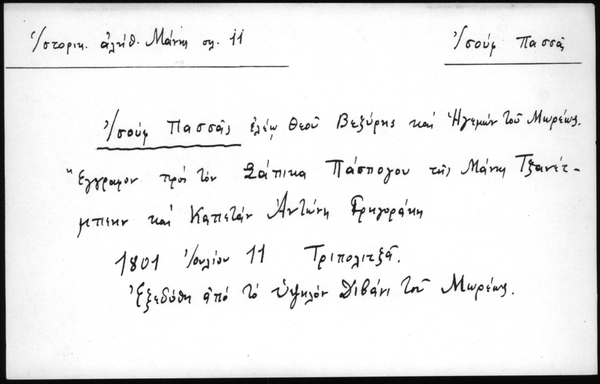 Ἱστορικ. ἀλήθ. Μάνης σελ. 11
Ἰσούφ Πασσᾶς
Ἰσούφ Πασσᾶς ἐλέῳ Θεοῦ Βεζύρης καί Ἡγεμών τοῦ Μωρέως.
"Εγγραφον πρός τόν Σάπικα Πάσπογου τῆς Μάνης Τζανέτ-
μπεην καί Καπετάν Ἀντώνη Γρηγοράκη
1801 Ἰουλίου 11 Τριπολιτζᾶ.
Ἐξεδόθη ἀπό τό ὑψηλόν Διβάνι τοῦ Μωρέως.